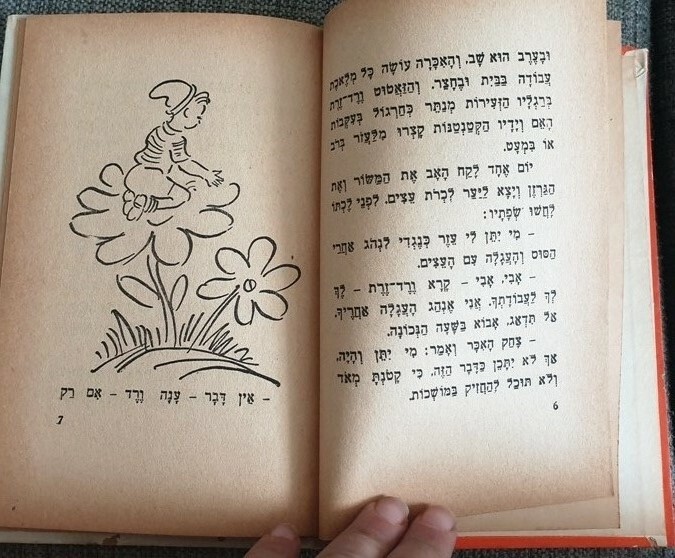 וּבָעֶרֶב הוּא שָׁב. וְהָאִכָּרָה עוֹשָׂה כָּל מְלֶאכֶת
עֲבוֹדָה בַּבַּיִת וּבֶחָצֵר. וְהַזַּאטוּט וֶרֶד־זֶרֶת
בְּרַגְלָיו הַזְּעִירוֹת מְנַתֵּר כְּחַרְגּוֹל בְּעִקְבוֹת
הָאֵם וְיָדָיו הַקְּטַנְטַנּוֹת קָצְרוּ מִלַּעֲזֹר בְּרֹב
אוֹ בִּמְעָט.
יוֹם אֶחָד לָקַח הָאָב אֶת הַמַּשּׂוֹר וְאֶת
הַגַּרְזֶן וְיָצָא לַיַּעַר לִכְרֹת עֵצִים. לִפְנֵי לֶכְתּוֹ
לָחֲשׁוּ שְׂפָתָיו:
– מִי יִתֵּן לִי עֵזֶר כְּנֶגְדִּי לִנְהֹג אַחֲרַי
הַסּוּס וְהָעֲגָלָה עִם הָעֵצִים.
– אָבִי, אָבִי – קָרָא וֶרֶד־זֶרֶת – לֵךְ
לְךָ לַעֲבוֹדָתְךָ. אֲנִי אֶנְהַג הָעֲגָלָה אַחֲרֶיךָ.
אַל תִּדְאַג, אָבוֹא בַּשָּׁעָה הַנְּכוֹנָה.
– צָחַק הָאִכָּר וְאָמַר: מִי יִתֵּן וְהָיָה,
אַךְ לֹא יִתָּכֵן כַּדָּבָר הַזֶּה, כִּי קָטֹנְתָּ מְאֹד
וְלֹא תּוּכַל לְהַחֲזִיק בַּמּוֹשְׁכוֹת.
6
– אֵין דָּבָר – עָנָה וֶרֶד – אִם רַק
7